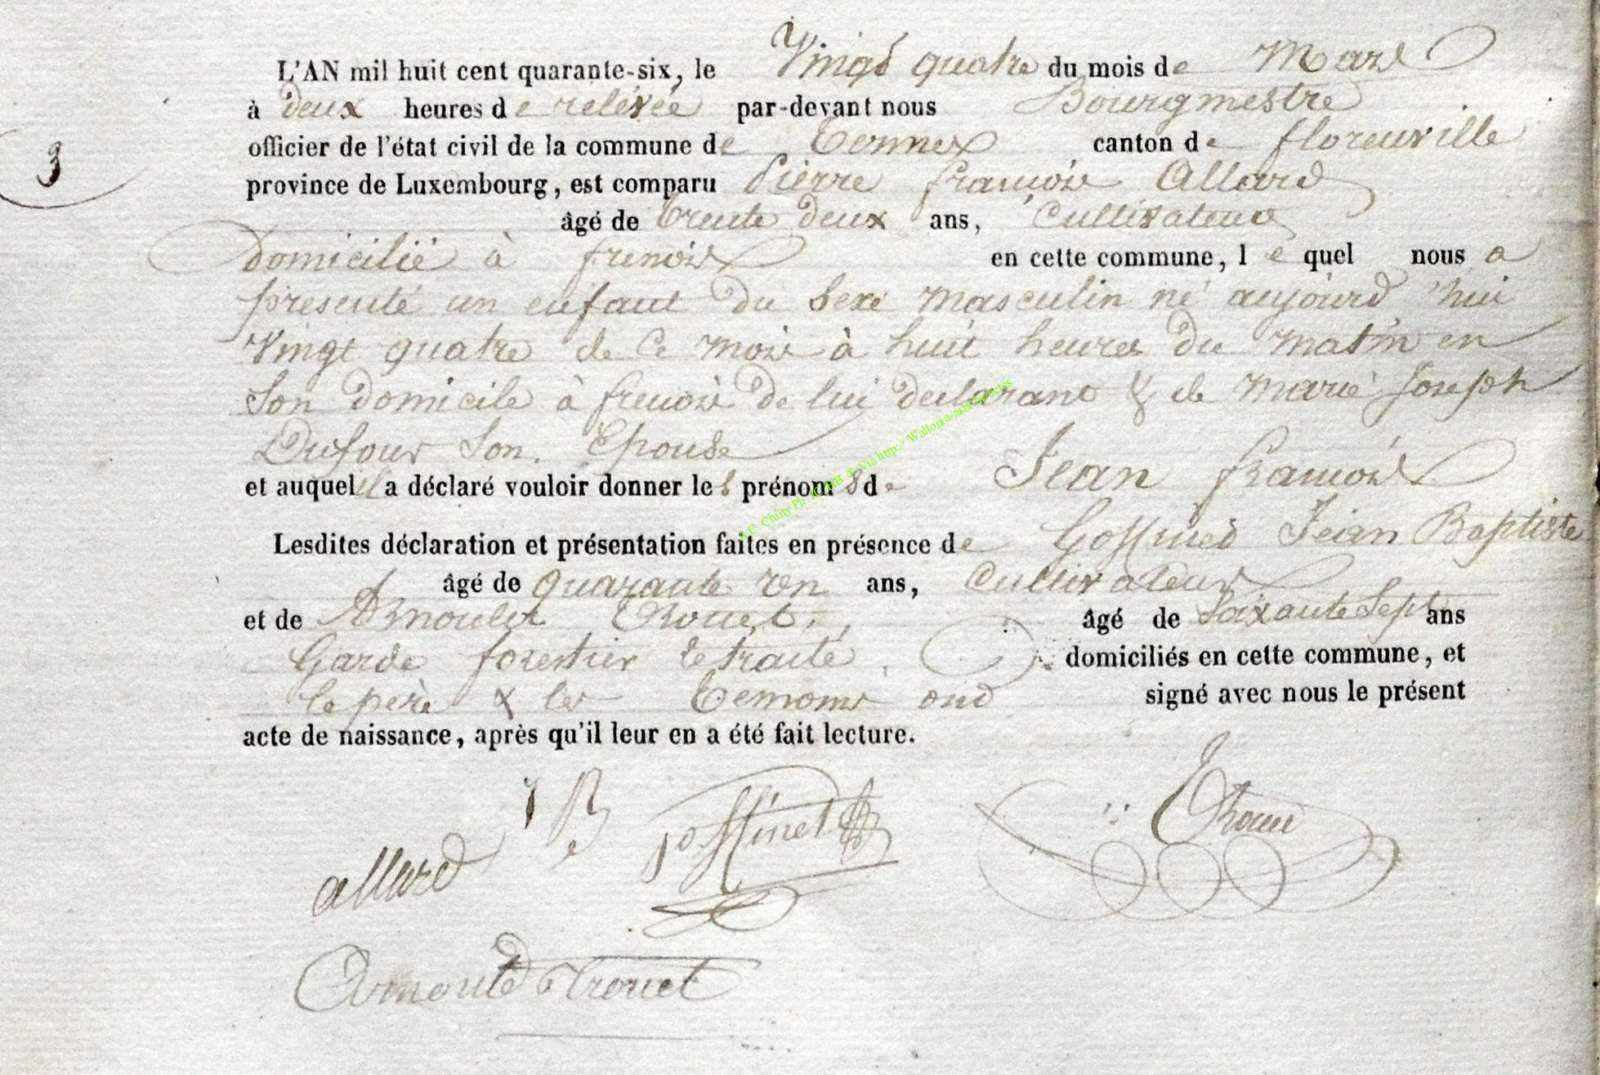 L'AN mil huit cent quarante-six, le Vingt quatre du mois de Mars
à deux heures de relévée par-devant nous Bourgmestre
officier de l'état civil de la commune de Termes canton de florenville
province de Luxembourg, est comparu Pierre françois Allard
âgé de trente deux ans, Cultivateur
domicilié à frenois en cette commune, lequel nous a
presenté un enfant du sexe masculin né aujourd'hui
vingt quatre de ce mois à huit heures du matin en
son domicile à frenois de lui declarant & de Marie Joseph
Dufour son Epouse
et auquel il a déclaré vouloir donner les prénoms de Jean françois
Lesdites déclaration et présentation faites en présence de Goffinet Jean Baptiste
âgé de quarante un ans, Cultivateur
et de Arnould Trouet, âgé de soixante sept ans
Garde forestier retraité, domiciliés en cette commune, et
le père & les temoins ont signé avec nous le présent
acte de naissance, après qu'il leur en a été fait lecture.
3
J B Goffinet
allard
Arnould Trouet